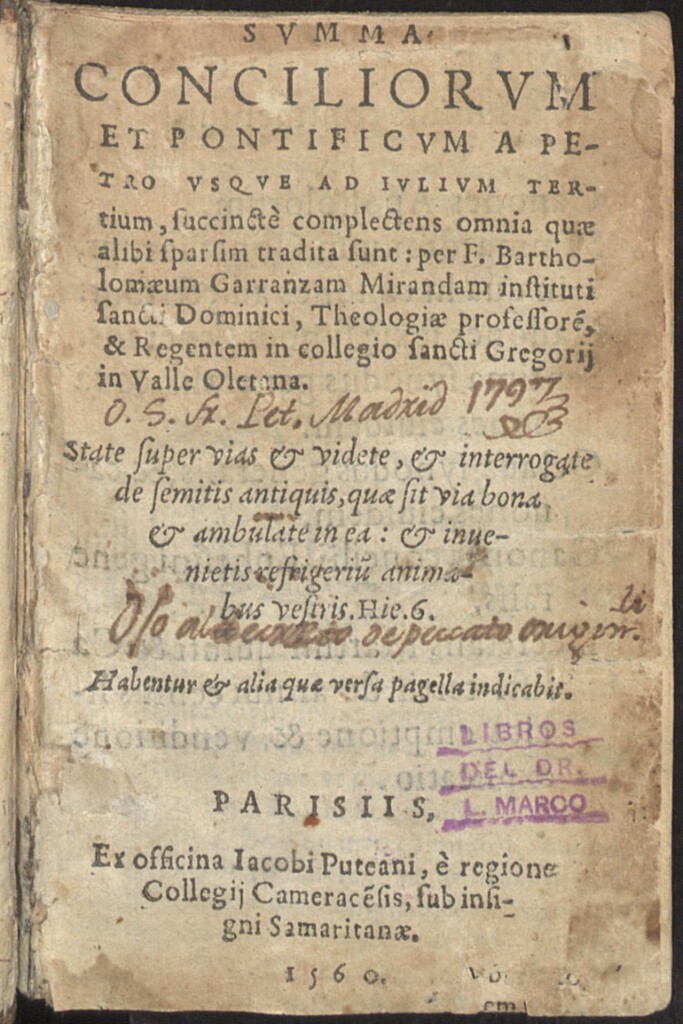 SVMMA
CONCILIORVM
ET PONTIFICVM A PE-
TRO VSQVE AD IVLIVM TER-
tium, succinctè complectens omnia quæ
alibi sparsim tradita sunt : per F. Bartho-
lomæum Garranzam Mirandam instituti
sancti Dominici, Theologiæ professorē,
& Regentem in collegio sancti Gregorij
in Valle Oletana.
O. S. Fr. Pet. Madrid 1797
State super vias & videte, & interrogate
de semitis antiquis, quæ sit via bona
& ambulate in ea : & inue-
nietis refrigeriū anima-
bus vestris. Hie. 6.
de peccato origin.
Habentur & alia quæ versa pagella indicabit.
LIBROS
DEL DR.
L. MARCO
PARISIIS,
Ex officina Iacobi Puteani, è regione
Collegij Cameracēsis, sub insi-
gni Samaritanæ.
1560.